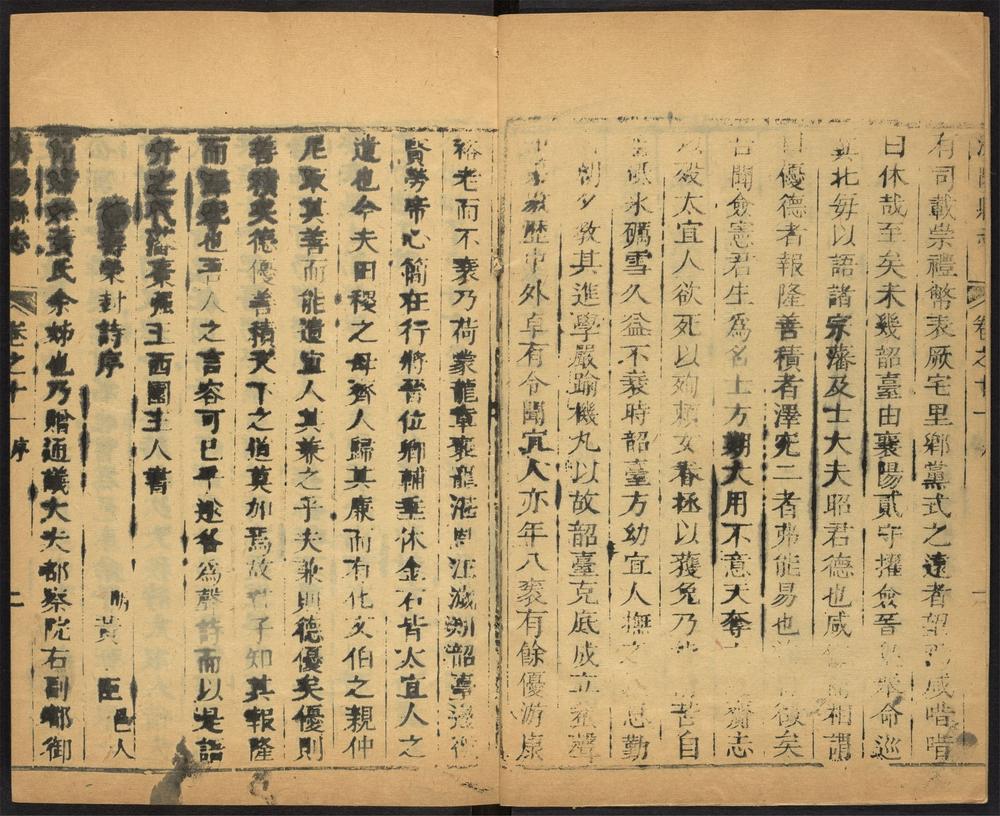 縣志 卷之廿一
有司載崇禮幣表厥宅里鄉黨式之遠者望咸嘖嘖
曰休哉至矣未幾韶臺由襄陽貳守擢僉晉命巡
北每以語諸宗藩及士大夫昭君德也咸相謂
曰優德者報隆善積者澤究二者弗能易也徵矣
吉聞僉憲君生為名士方期大用不意天奪齋志
以歿太宜人欲死以殉女眷拯以獲免乃苦自
冰礪雪久益不衰時韶臺方幼宜人撫之勤
朝夕教其進學嚴踰機丸以故韶臺克底成立聲
歷中外卓有令聞宜人亦年八袠有餘優游康
裕老而不衰乃荷蒙龍章褒寵汪濊韶臺
賢勞帝心簡在行將晉位卿輔垂休金石皆太宜人之
遺也今夫田稷之母齊人歸其廉而有化文伯之親仲
尼取其善而能遺宜人其兼之乎夫兼則德優矣優則
善積矣德優善積天下之道莫加焉故君子知其報隆
而澤究也吾人之言容可已乎遂各為聲詩而以是語
弁之代藩棗強王西園主人書
壽榮封詩序
明黃臣邑人
黃氏余姊也乃贈通議大夫都察院右副都御
陽縣志 卷之廿一 序 二